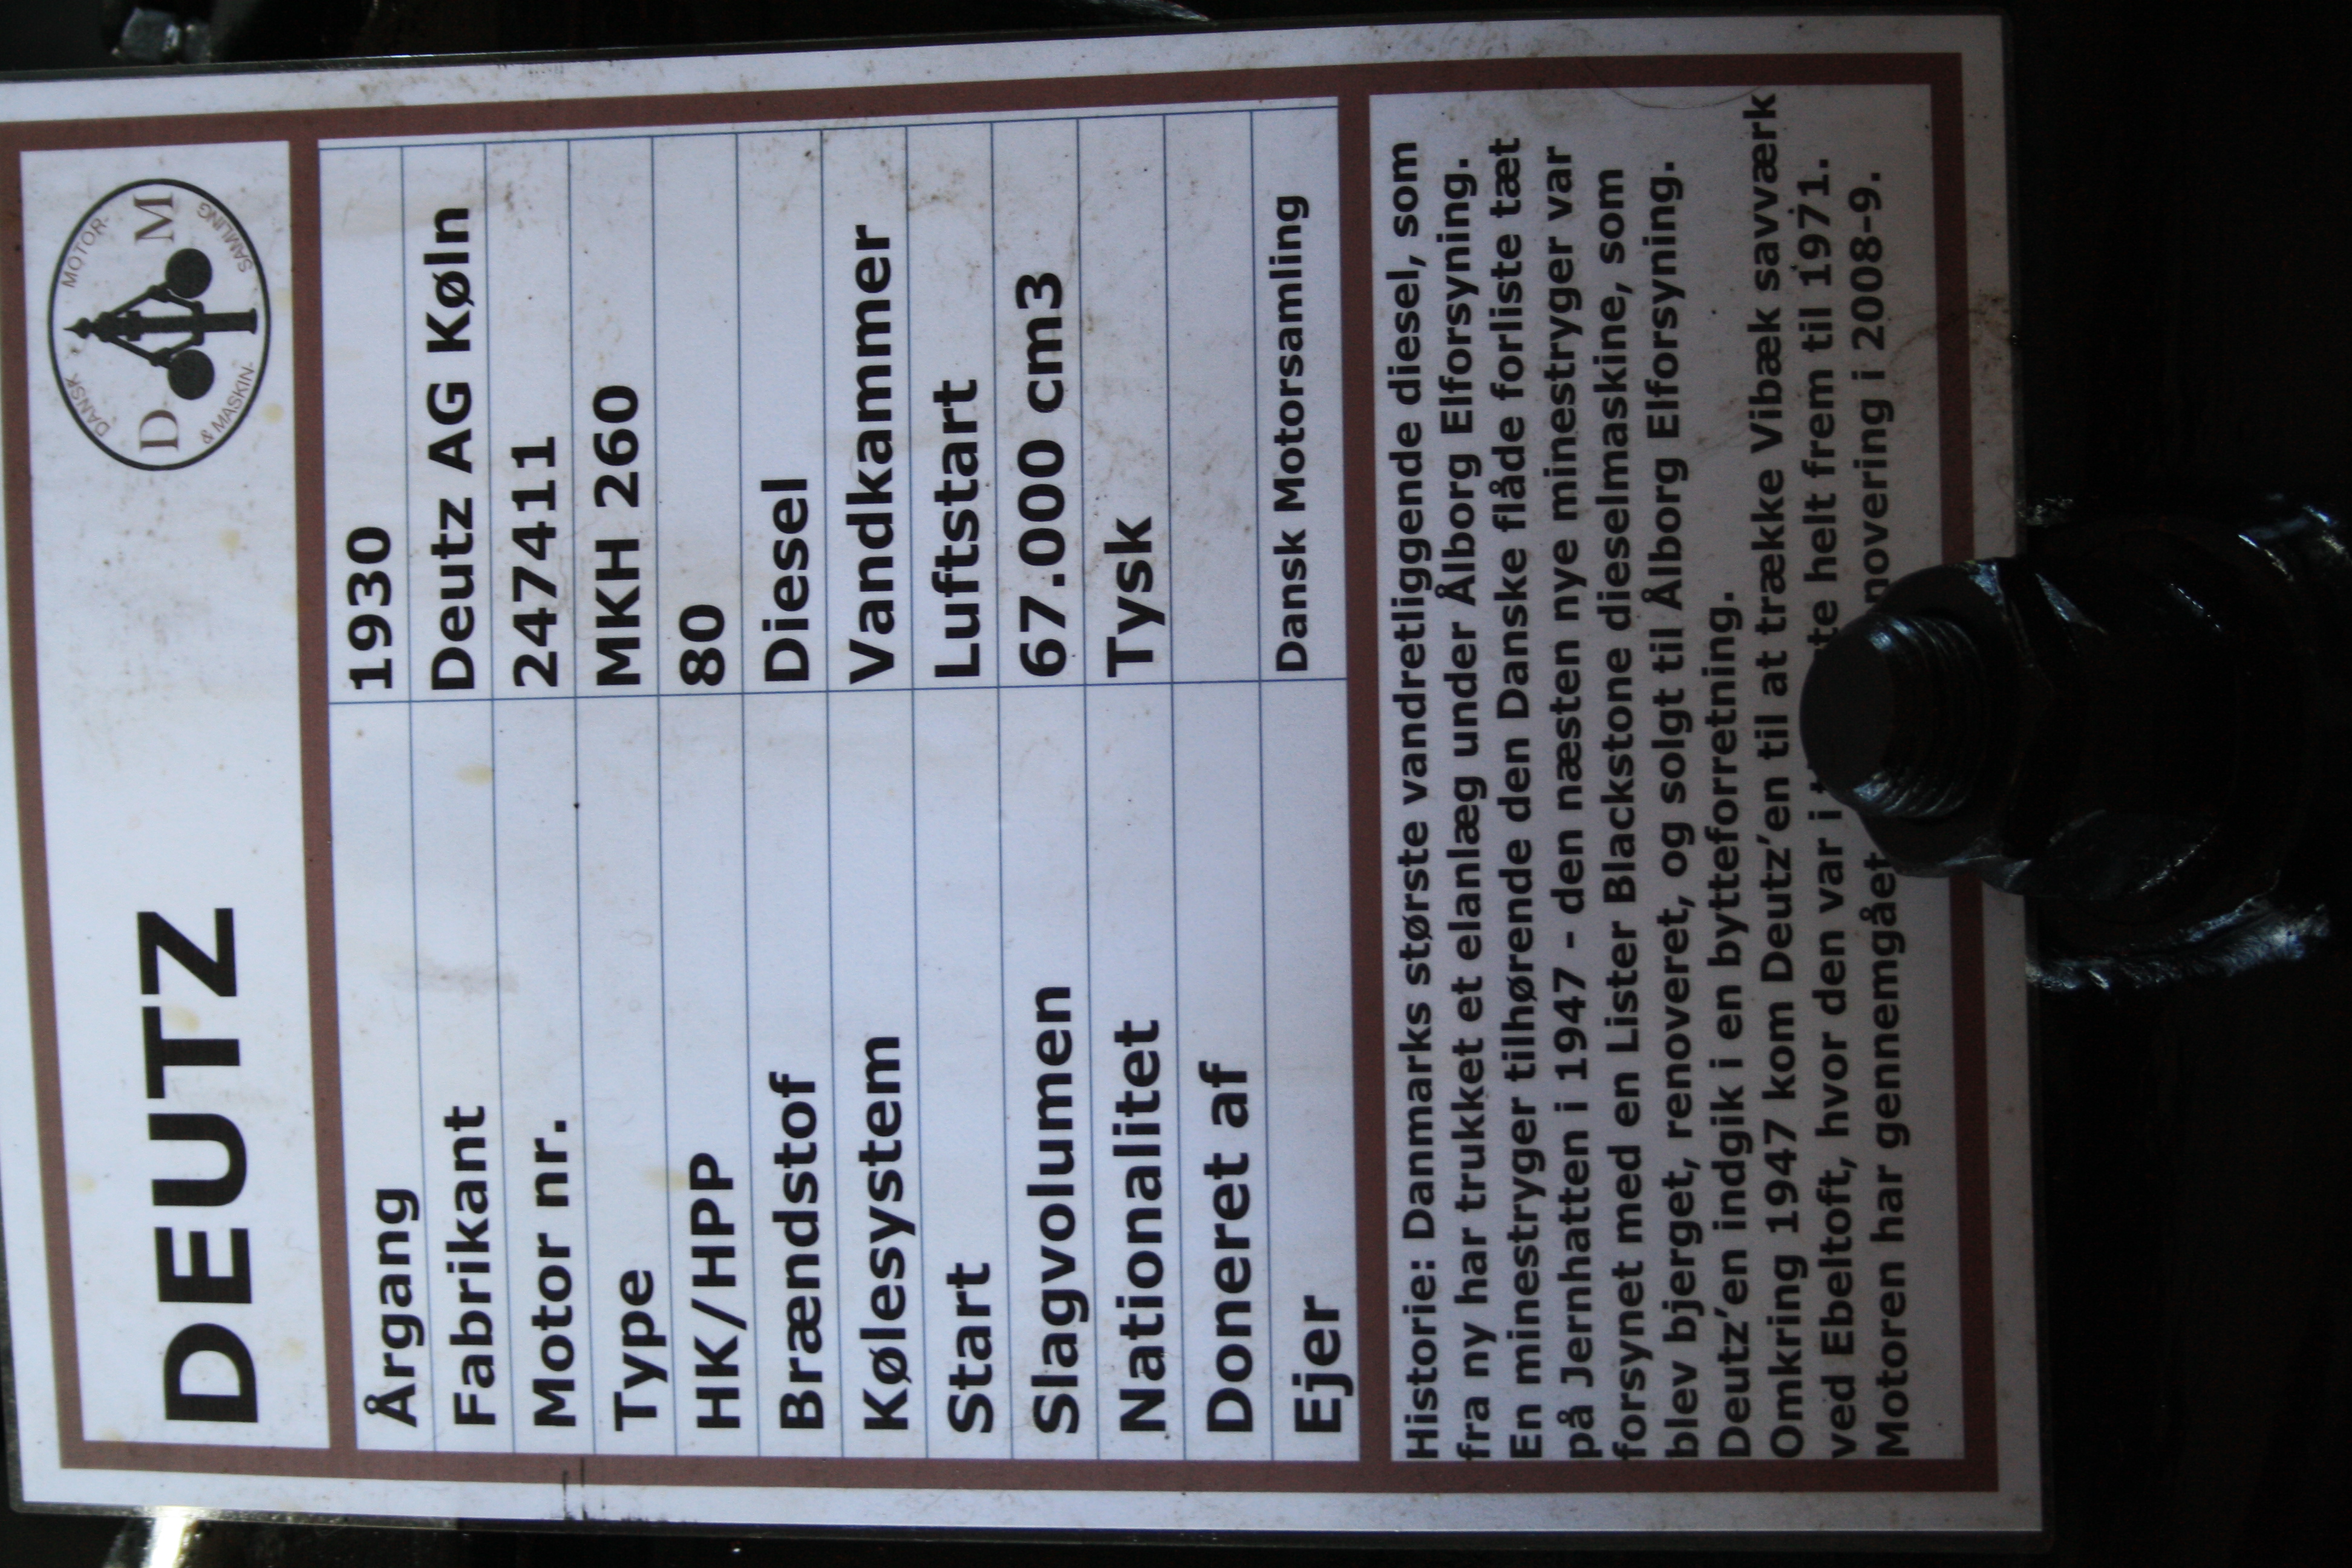 DEUTZ
DANSK MOTOR-
D M
& MASKIN- SAMLING
Årgang 1930
Fabrikant Deutz AG Køln
Motor nr. 247411
Type MKH 260
HK/HPP 80
Brændstof Diesel
Kølesystem Vandkammer
Start Luftstart
Slagvolumen 67.000 cm3
Nationalitet Tysk
Doneret af
Ejer Dansk Motorsamling
Historie: Danmarks største vandretliggende diesel, som
fra ny har trukket et elanlæg under Ålborg Elforsyning.
En minestryger tilhørende den Danske flåde forliste tæt
på Jernhatten i 1947 - den næsten nye minestryger var
forsynet med en Lister Blackstone dieselmaskine, som
blev bjerget, renoveret, og solgt til Ålborg Elforsyning.
Deutz’en indgik i en bytteforretning.
Omkring 1947 kom Deutz’en til at trække Vibæk savværk
ved Ebeltoft, hvor den var i helt frem til 1971.
Motoren har gennemgået i 2008-9.